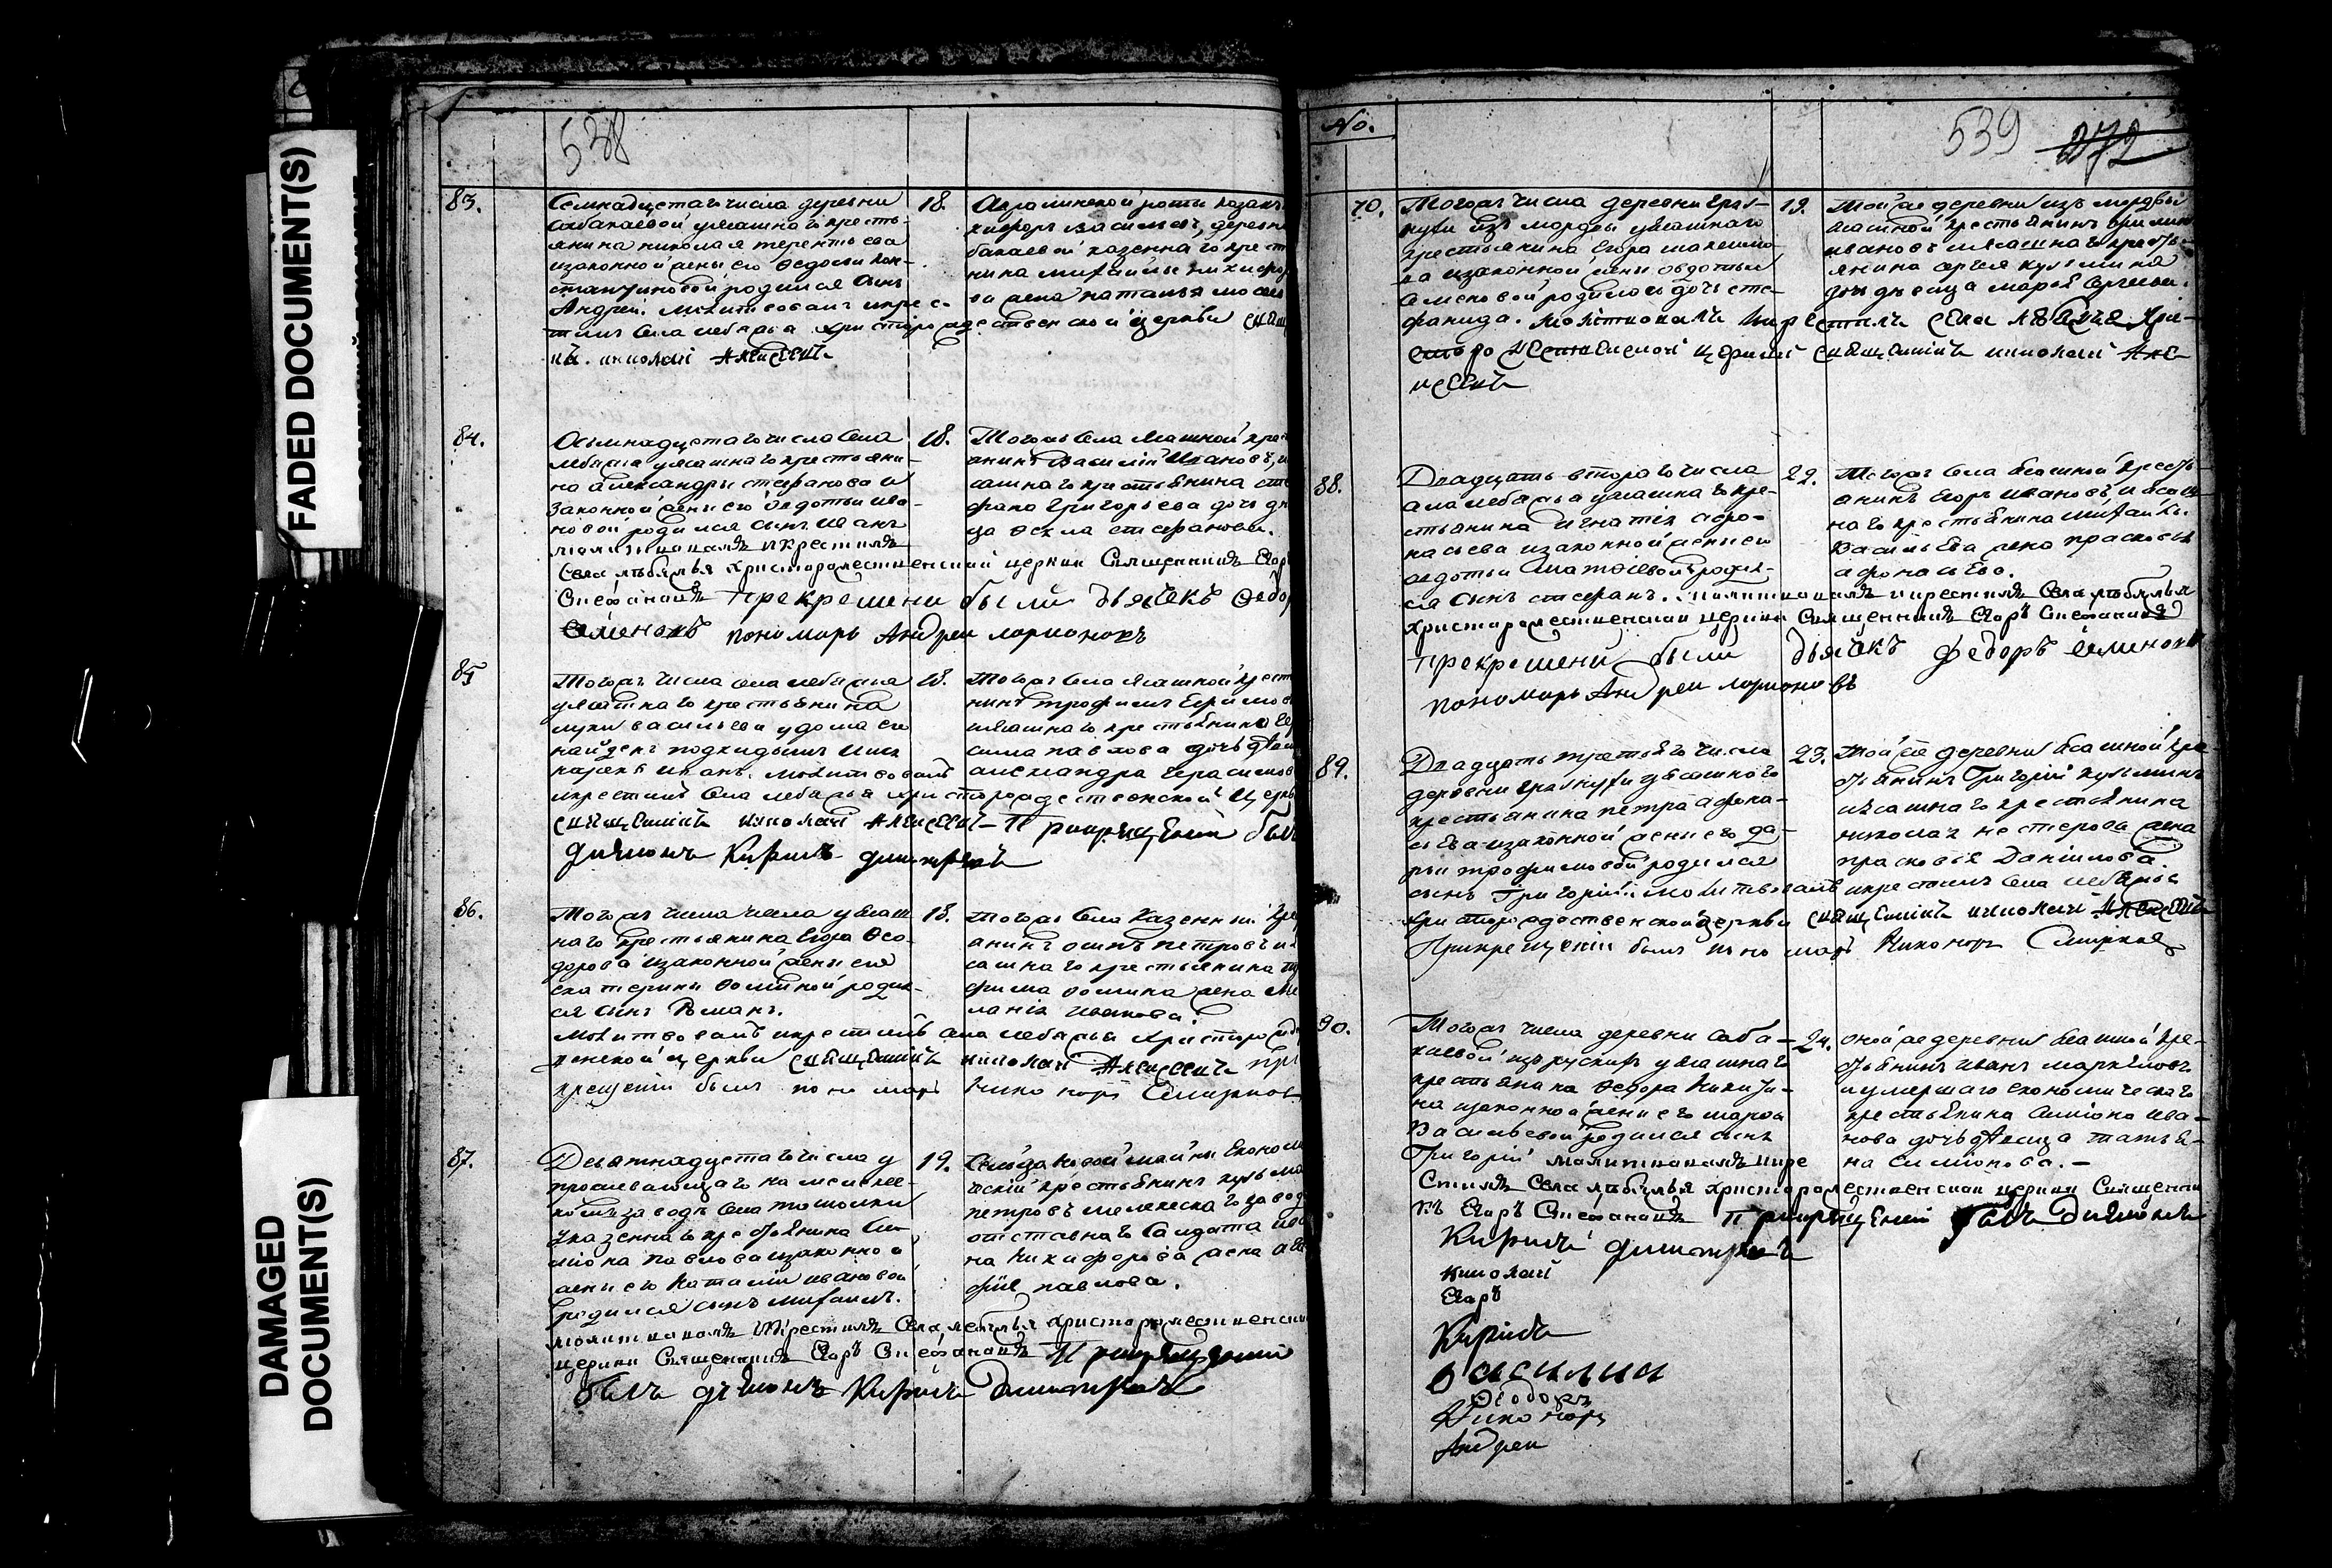 FADED DOCUMENT(S)
DAMAGED
DOCUMENT(S)
538
83.
Семнадцетаго числа деревни
янина николая терентьева
изаконной жены его Ѳедосьи Кон-
стантиновой родился сынъ
Андрей. Молитвовалъ икре с-
тилъ села лебяжья христорождественской церкви свящ
николай Алексеевъ
18.
казакъ
Васильевъ, деревни
казеннаго крест
84.
Осьмнадцетаго числа села
лебяжья уясашнаго крестьяни-
на александры стефанова и
законной жены его Ѳедотьи ива-
новой родился сынъ иванъ
молитвовалъ икрестилъ
села лѣбяжья христорождественской церкви Священникъ Егоръ
Стефановъ Прекрещени были дьячекъ Ѳедоръ
Семеновъ пономарь Андреи ларионовъ
18.
Тогожъ села Ясашной
анинъ Василiй Ивановъ,
сашнаго крестьянина сте
фана Григорьева дочь дѣ
ца Ѳекла стефанова.
85
Тогожъ числа села лебяжья
уясашнаго крестьянина
луки васильева удома его
найденъ подкидышъ
нареченъ иванъ. молитвовалъ
икрестилъ села лебяжья христорождественской церкв
священникъ николай Алексеевъ - При крещенiи былъ
дьяконъ Кирилъ димитриевъ
18.
Тогожъ села Ясашной крест
нинъ трофимъ Ефимов
иясашнаго крестьянина
сима павлова дочь
александра герасимов
86.
Тогожъ числа села уясаш
наго крестьянина Егора Ѳео-
дорова изаконной жены его
екатерины Ѳоминой родил-
ся сынъ Романъ.
Молитвовалъ икрестилъ села лебяжьи Христорожд
венской церкви священникъ николай Алексеевъ при
крещенiи былъ пономарь Никоноръ Смирновъ
18.
Тогожъ села казенный
анинъ осипъ петровъ
сашнаго крестьянина
фима Ѳомина жена
ланiя иванова.
87.
Девятнадцетаго числа у
проживающаго на мелекес-
комъ заводѣ села
казеннаго крестьянина Си-
мiона павлова изаконной
жены его Наталiи ивановой
родился сынъ михаилъ.
молитвовалъ икрестилъ села лебяжья христорождественской
церкви Священникъ Егоръ Стефановъ При крещенiи
былъ дьяконъ Кирилъ Димитриевъ
19.
майны Економ
ческiй крестьянинъ кузьма
петровъ мелекескаго завода
отставнаго Салдата ива
на Никифорова жена
павлова.
No.
539
272
70.
Тогожъ числа деревни
изъ мордвы уясашнаго
крестьянина Егора
ва изаконной жены овдотьи
Семеновой родилась дочь сте-
фанида. молитвовалъ икрестилъ села лѣбяжья Хри-
сторождественской церкви священникъ николай Але-
ксеевъ
19.
Тойже деревни изъ мордвы
Ясашной крестьянинъ
ивановъ иясашнаго кресть-
янина сергея кузьмина
дочь дѣвица марья Сергеева.
88.
Двадцать втораго числа
села лебяжья уясашнаго кре-
стьянина игнатiя афо-
насьева изаконной жены его
авдотьи Матвiевой родил-
ся сынъ стефанъ. молитвовалъ икрестилъ Села лѣбяжья
христорождественской церкви Священникъ Егоръ Стефановъ
Прекрещени были дьячекъ Федоръ Семеновъ
пономарь Андреи ларионовъ
22.
Тогожъ села Ясашной кресть-
янинъ Егоръ ивановъ, иясаш-
наго крестьянина михаила
Васильева жена прасковья
афонасьева.
89.
Двадцать третьяго числа
деревни уясашнаго
крестьянина петра афона-
сьева изаконной жены его да-
рьи трофимовой родился
сынъ Григорiй. молитвовалъ икрестилъ села лебяжья
христорождественской церкви священникъ николай Алексеевъ
При крещенiи былъ пономарь Никоноръ Смирновъ
23.
Тойже деревни Ясашной кре-
стьянинъ Григорiй кузьминъ
иясашнаго крестьянина
николая нестерова жена
прасковья Данiилова.
90.
Тогожъ числа деревни Саба-
каевой изъ рускихъ уясашнаго
крестьянина Ѳедора Никити-
на изаконной жены его марьи
Васильевой родился сынъ
Григорiй молитвовалъ икре
стилъ Села лѣбяжья христорождественской церкви Священни
къ Егоръ Стефановъ При крещенiи былъ дьяконъ
Кирилъ димитриевъ
24.
оной же деревни Ясашной кре-
стьянинъ иванъ маркѣловъ
иумершаго економическаго
крестьянина Симiона ива-
нова дочь дѣвица татья-
на Симiонова. -
николай
Егоръ
Кирилъ
василии
Ѳеодоръ
Никоноръ
Андреи